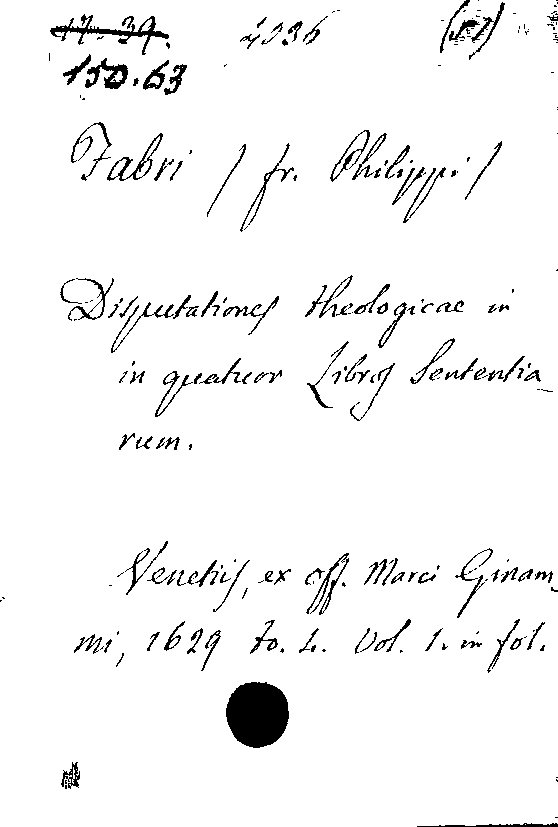 17.39. 4036
150.63
Fabri / fr. Philippi /
Disputationes theologicae in
in quatuor Libros Sententia_
rum.
Venetiis, ex off. Marci Ginam_
mi, 1629 to. 4. Vol. 1. in fol.